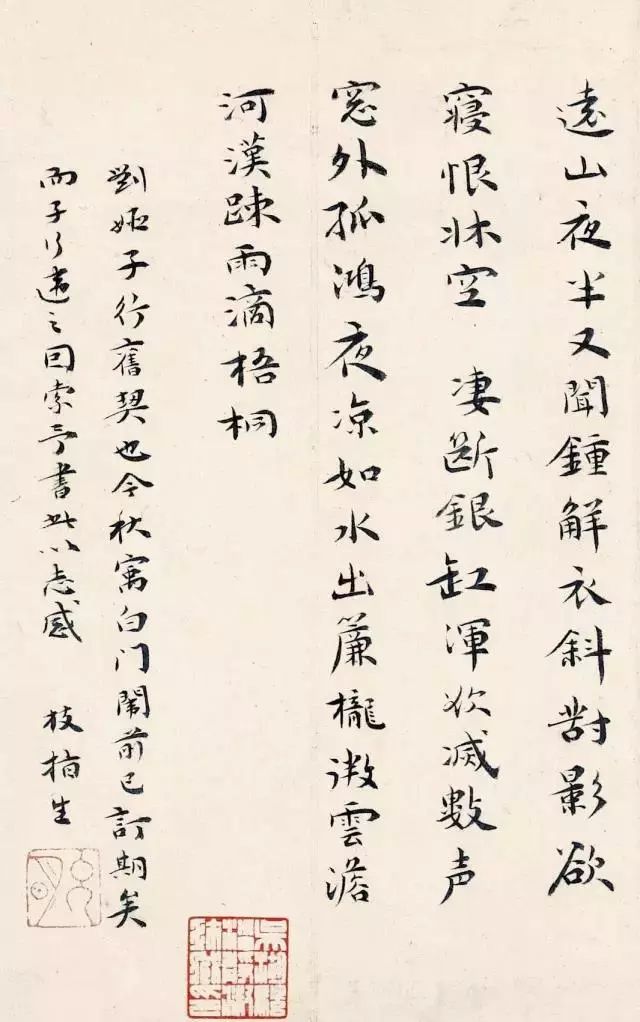 遠山夜半又聞鍾解衣斜對影欲
寢恨牀空 凄斷銀缸渾欲滅數声
窓外孤鴻夜凉如水出簾櫳微雲澹
河漢踈雨滴梧桐
劉姬子行舊契也今秋寓白门闈前已訂期矣
而子行遠之回索予書此以志感 枝指生